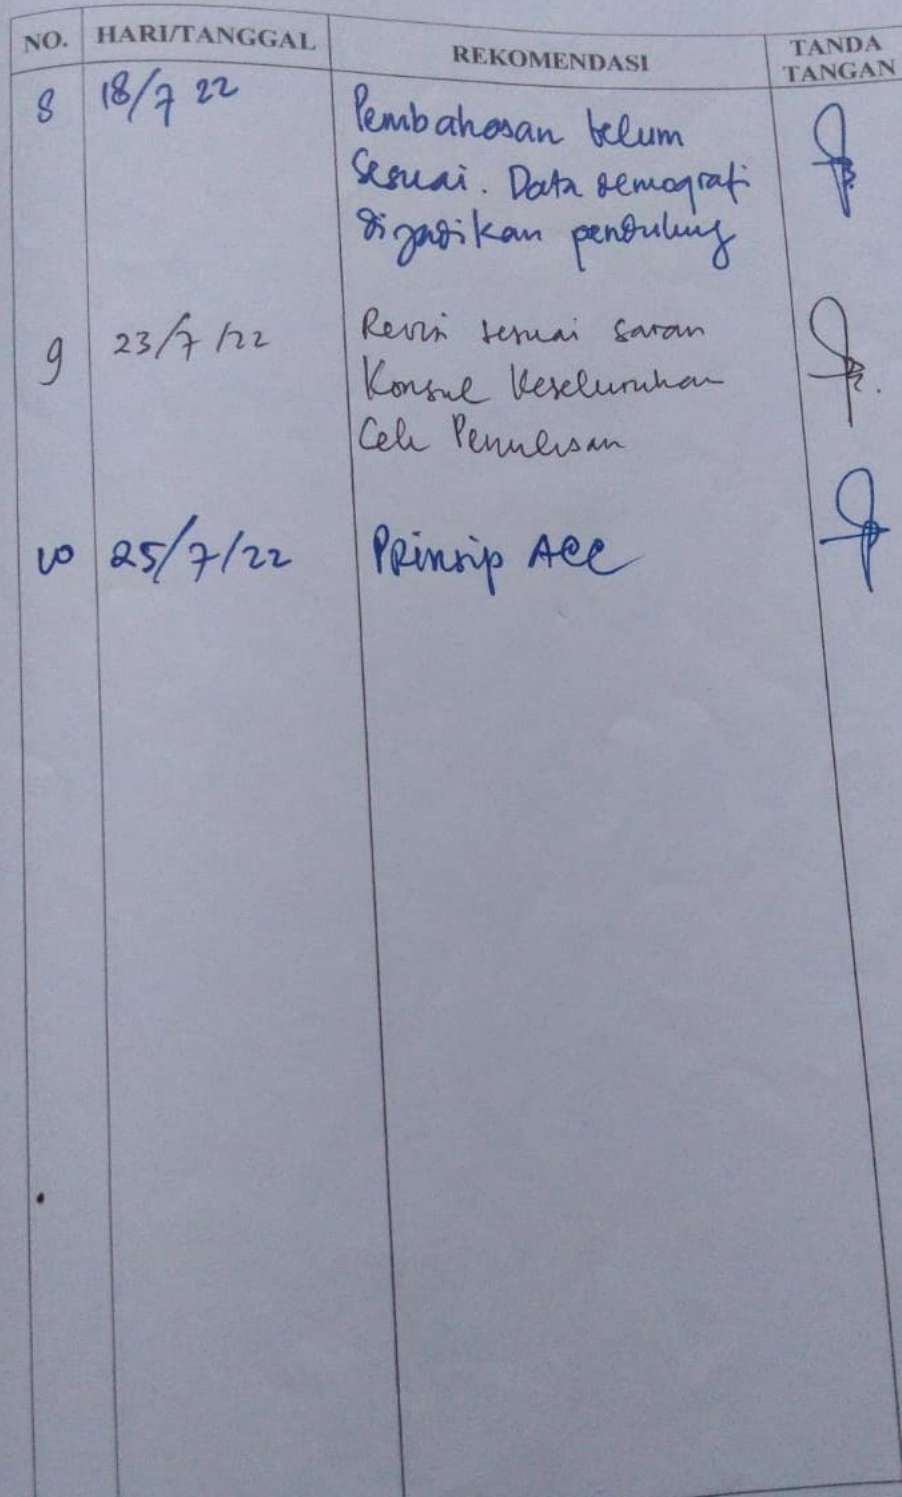 NO. HARI/TANGGAL REKOMENDASI TANDA TANGAN
8 18/7 22 Pembahasan belum
sesuai. Data demografi
dijadikan pendukung
9 23/7/22 Revisi sesuai saran
Konsul keseluruhan
Cek Penulisan
10 25/7/22 Prinsip ACC